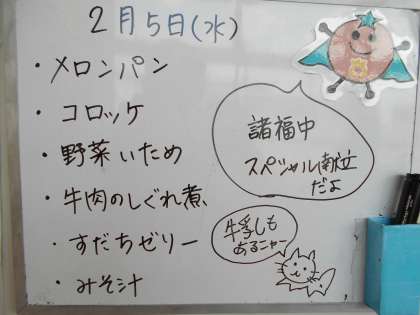 2月5日(水)
・メロンパン
・コロッケ
・野菜いため
・牛肉のしぐれ煮
・すだちゼリー
・みそ汁
諸福中
スペシャル献立
だよ
牛乳も
あるニャー